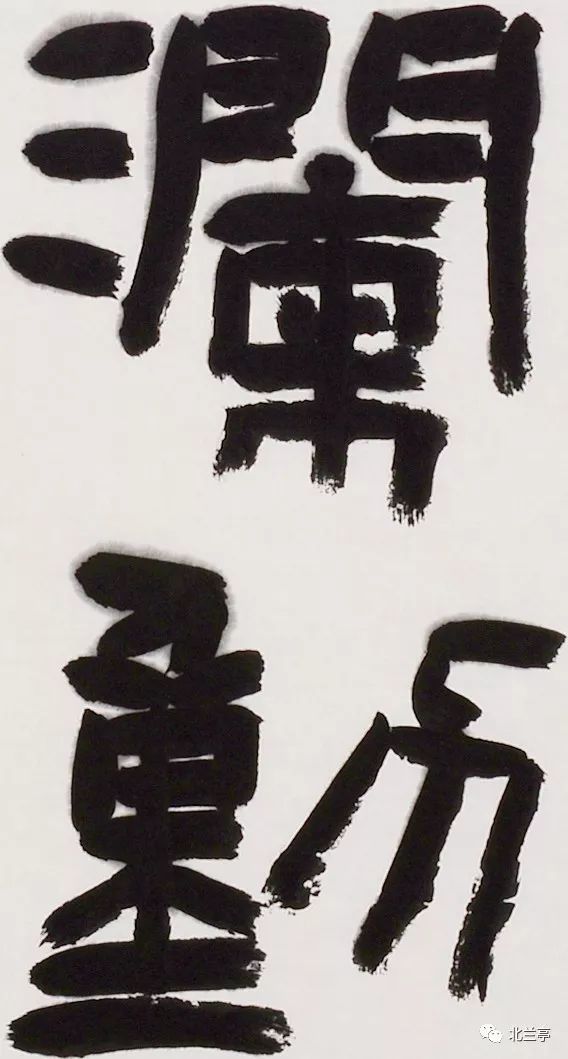 瀾
動
北兰亭